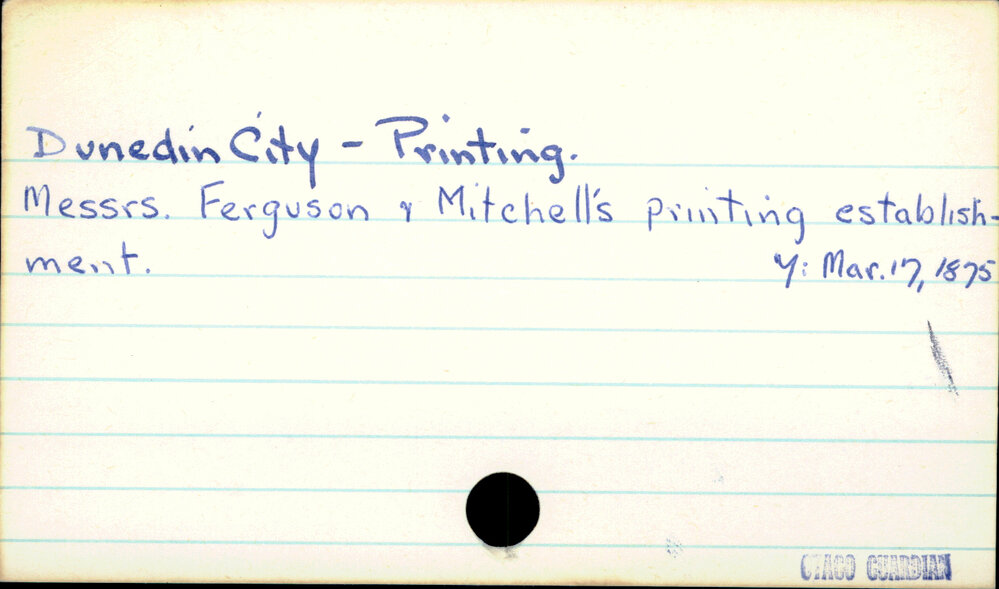 Dunedin City - Printing.
Messrs. Ferguson & Mitchell's printing establish-
ment. Y: Mar. 17, 1875
OTAGO GUARDIAN